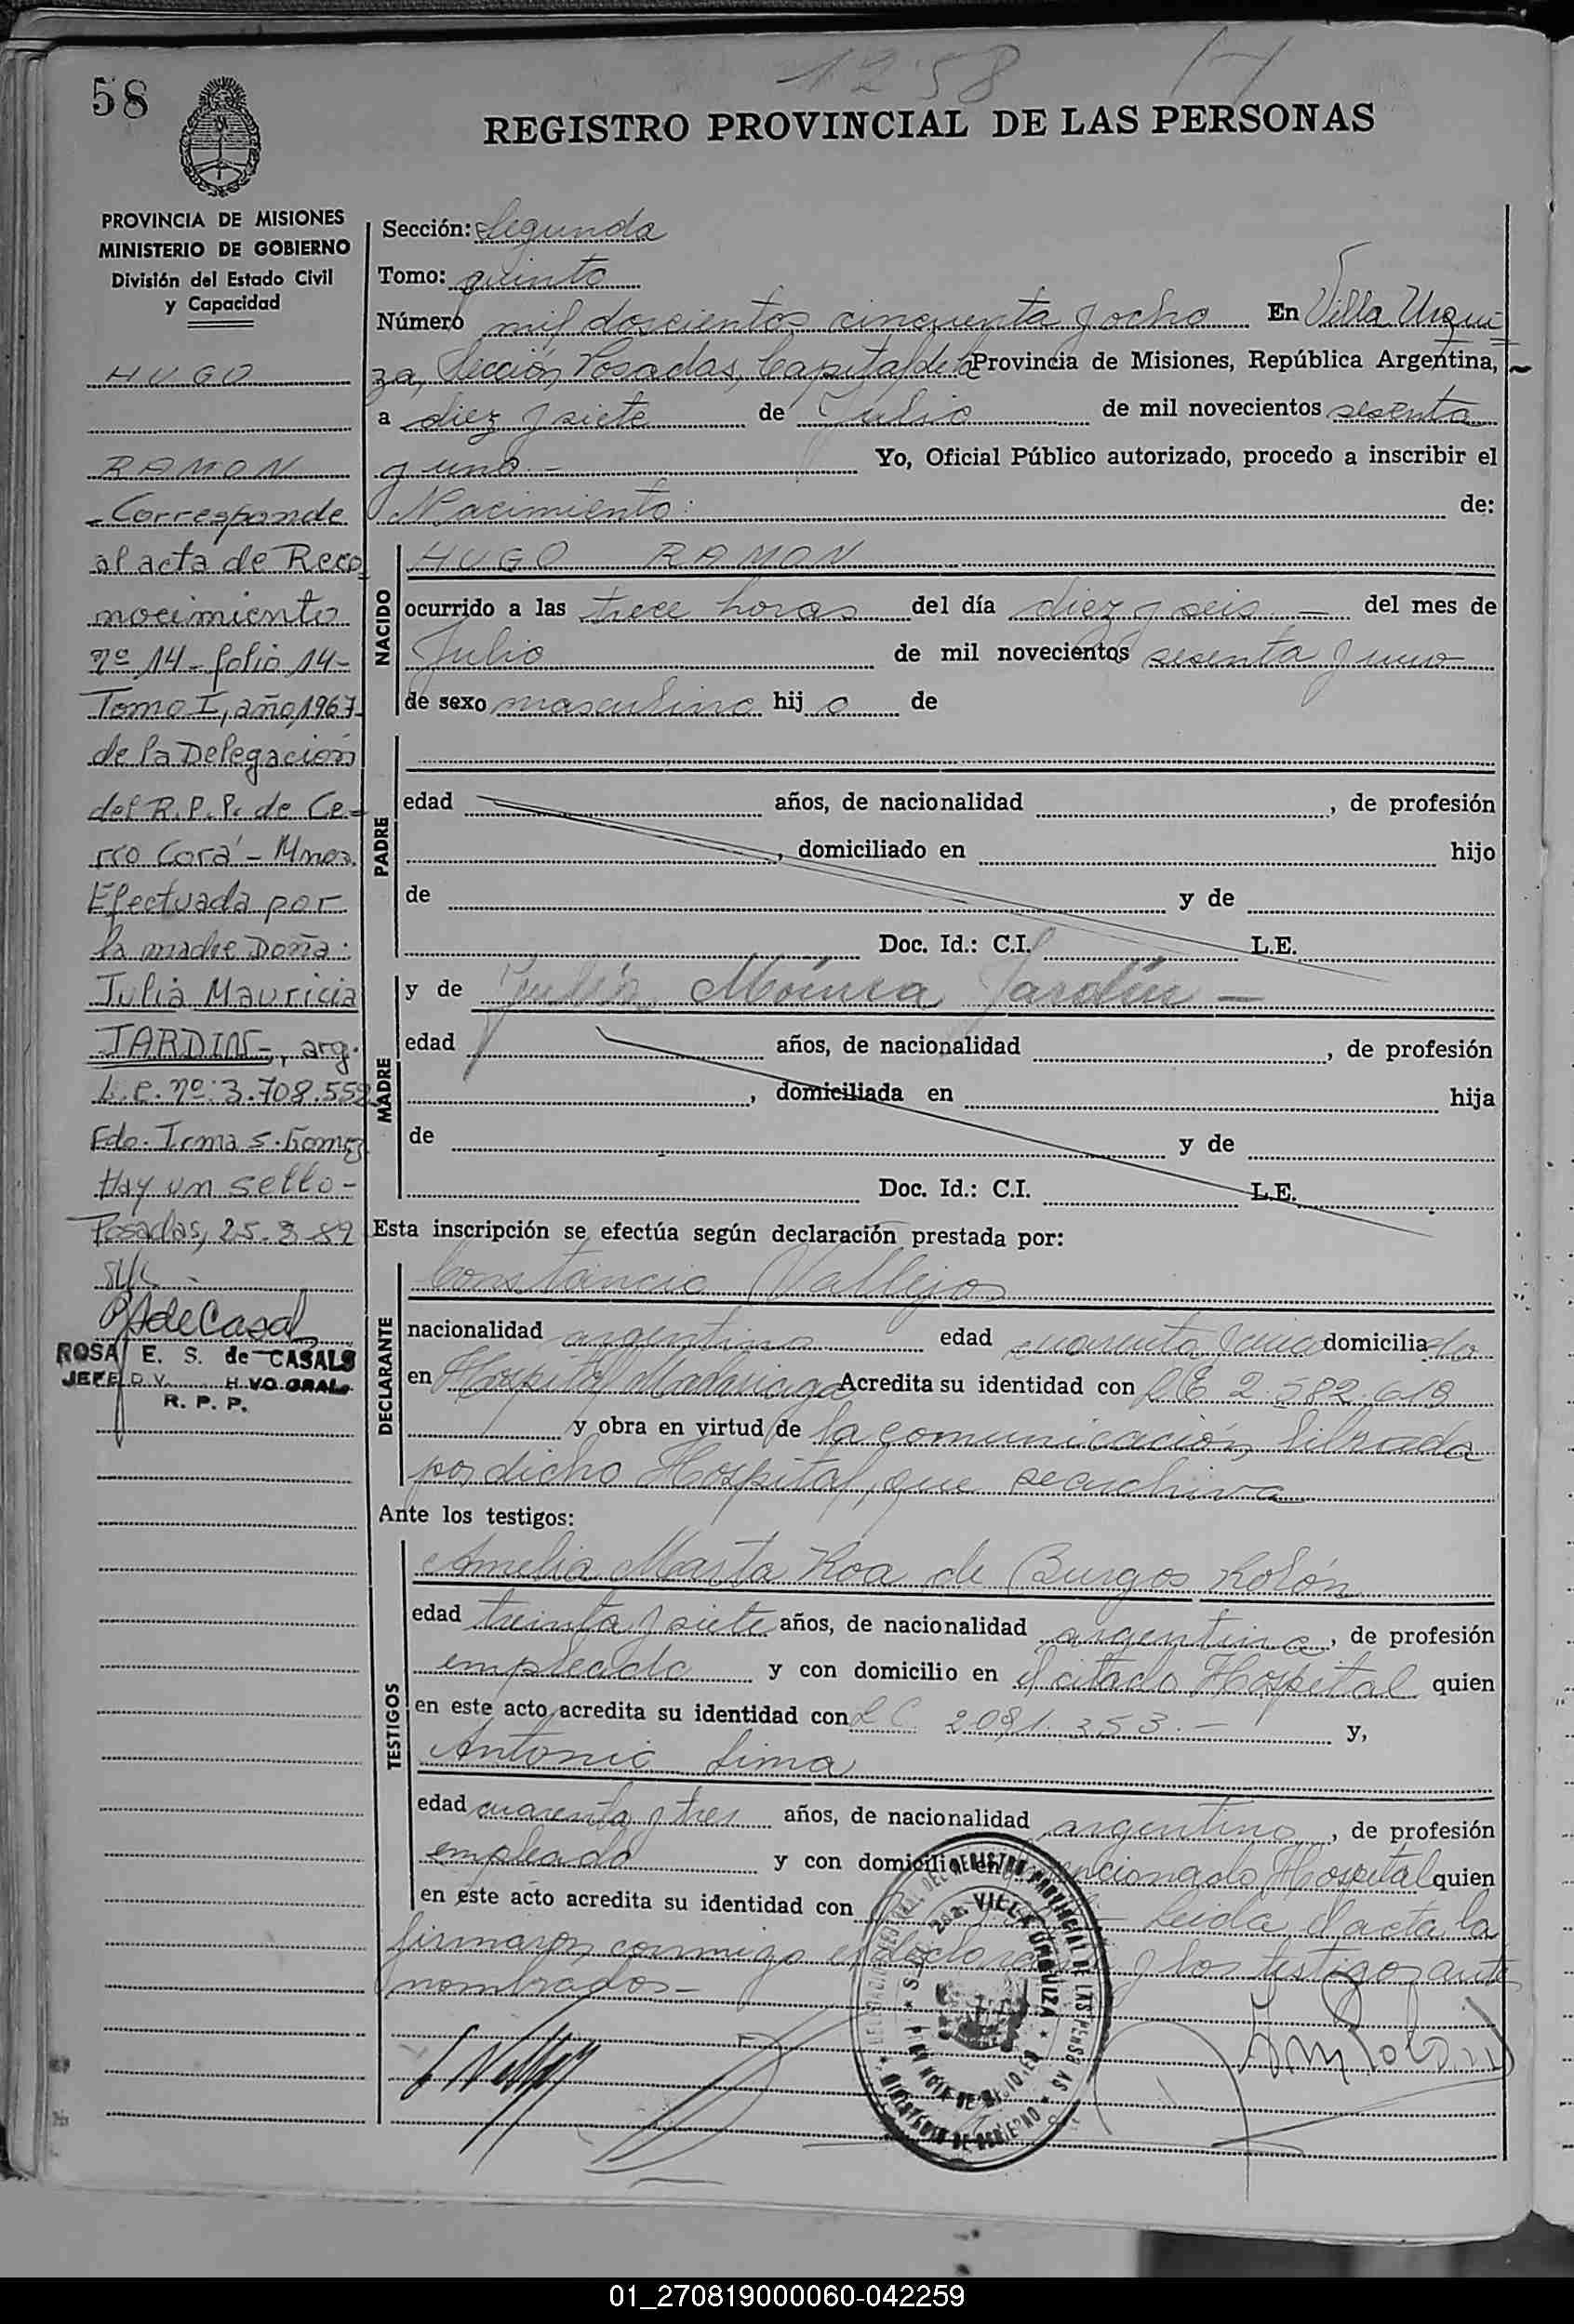 1258
58
REGISTRO PROVINCIAL DE LAS PERSONAS
PROVINCIA DE MISIONES
MINISTERIO DE GOBIERNO
División del Estado Civil
y Capacidad
HUGO
RAMON
-Corresponde
al acta de Reco
nocimiento
nº 14-folio 14-
Tomo I, año 1967
de la Delegación
del R.P.P. de Ce-
rro Corá - Mnes.
Efectuada por
la madre Doña:
Julia Mauricia
JARDIN-, arg.
L.C. nº: 3.708.552
Fdo. Irma S. Gomez
Hay un sello-
Posadas, 25.3.82
ROSA E. S. de CASALS
R. P. P.
Sección: Segunda
Tomo: quinto
Número mil doscientos cincuenta y ocho En Villa Urqui
za, Sección Posadas, Capital de la Provincia de Misiones, República Argentina,
a diez y siete de Julio de mil novecientos sesenta
y uno.- Yo, Oficial Público autorizado, procedo a inscribir el
Nacimiento: de:
NACIDO
HUGO RAMON
ocurrido a las trece horas del día diez y seis - del mes de
Julio de mil novecientos sesenta y uno
de sexo masculino hijo de
PADRE
edad años, de nacionalidad , de profesión
, domiciliado en hijo
de y de
Doc. Id.: C.I. L.E.
MADRE
y de Julia Jardín -
edad años, de nacionalidad , de profesión
, domiciliada en hija
de y de
Doc. Id.: C.I. L.E.
Esta inscripción se efectúa según declaración prestada por:
DECLARANTE
Constancio Vallejos
nacionalidad argentino edad cuarenta y domiciliado
en Hospital Madariaga Acredita su identidad con L E 2.582.619
y obra en virtud de la comunicación librada
por dicho Hospital, que se archiva
Ante los testigos:
TESTIGOS
Amelia Marta Roa de Burgos Rolón
edad treinta y siete años, de nacionalidad argentina, de profesión
empleada y con domicilio en el citado Hospital quien
en este acto acredita su identidad con L C 2081.353.- y,
Antonio Lima
edad cuarenta y tres años, de nacionalidad argentino, de profesión
empleado y con domicilio en mencionado Hospital quien
en este acto acredita su identidad con - Leida el acta la
firmaron conmigo el declarante y los testigos ante
nombrados-
REGISTRO PROVINCIAL DE LAS PERSONAS
VILLA URQUIZA
PROVINCIA DE MISIONES
MINISTERIO DE GOBIERNO
01_270819000060-042259